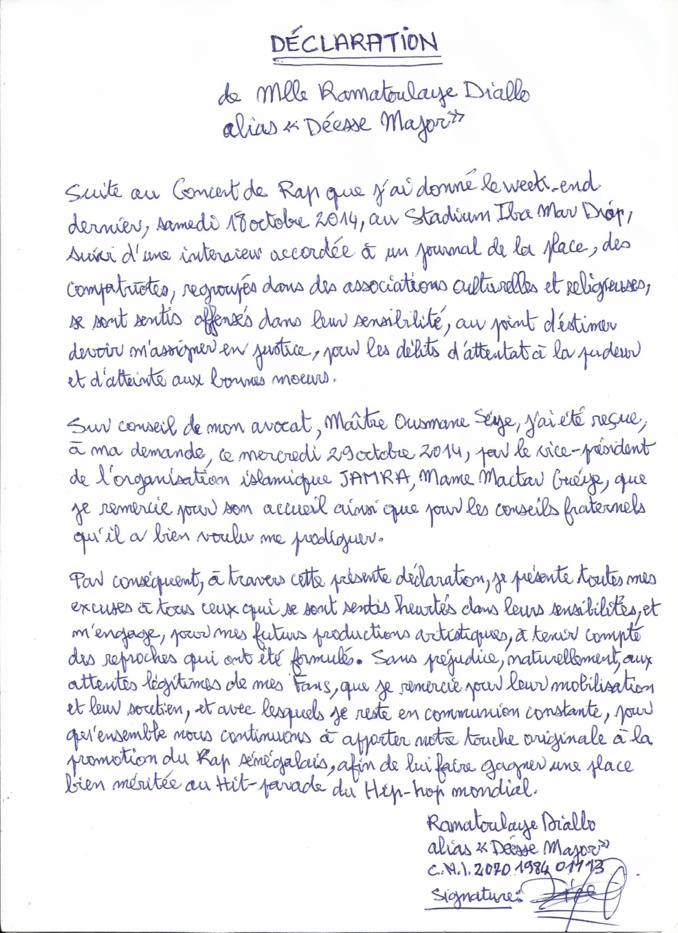 DÉCLARATION
de Mlle Ramatoulaye Diallo
alias « Déesse Major »
Suite au Concert de Rap que j'ai donné le week-end
dernier, samedi 18 octobre 2014, au Stadium Iba Mar Diop,
suivi d'une interview accordée à un journal de la place, des
compatriotes, regroupés dans des associations culturelles et religieuses,
se sont sentis offensés dans leur sensibilité, au point d'éstimer
devoir m'assigner en justice, pour les délits d'attentat à la pudeur
et d'atteinte aux bonnes moeurs.
Sur conseil de mon avocat, Maître Ousmane Sèye, j'ai été reçue,
à ma demande, ce mercredi 29 octobre 2014, par le vice-président
de l'organisation islamique JAMRA, Mame Mactar Guèye, que
je remercie pour son accueil ainsi que pour les conseils fraternels
qu'il a bien voulu me prodiguer.
Par conséquent, à travers cette présente déclaration, je présente toutes mes
excuses à tous ceux qui se sont sentis heurtés dans leurs sensibilités, et
m'engage, pour mes futurs productions artistiques, à tenir compte
des reproches qui ont été formulés. Sans préjudice, naturellement, aux
attentes légitimes de mes Fans, que je remercie pour leur mobilisation
et leur soutien, et avec lesquels je reste en communion constante, pour
qu'ensemble nous continuons à apporter notre touche originale à la
promotion du Rap sénégalais, afin de lui faire gagner une place
bien méritée au Hit-parade du Hip-hop mondial.
Ramatoulaye Diallo
alias « Déesse Major »
C.N.I. 2070 1984 01113
Signature: